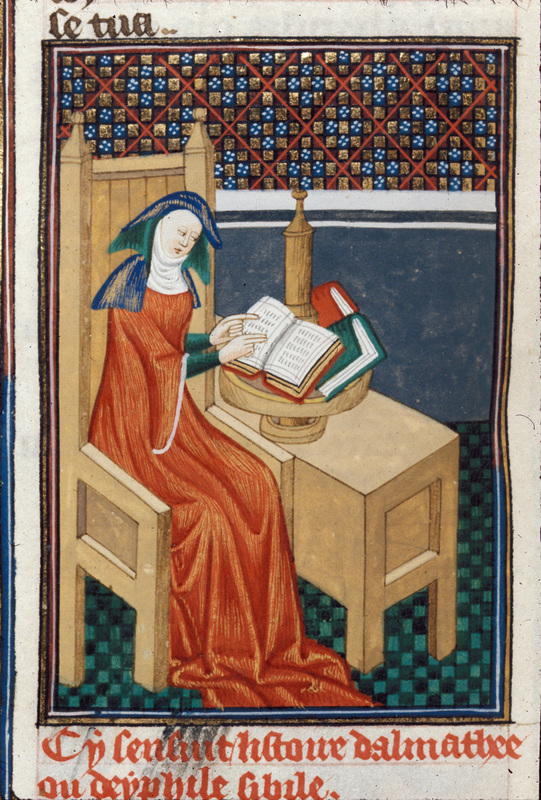 se tua..
Cy sensuit listoire dalmathee
ou deyphile sibile.